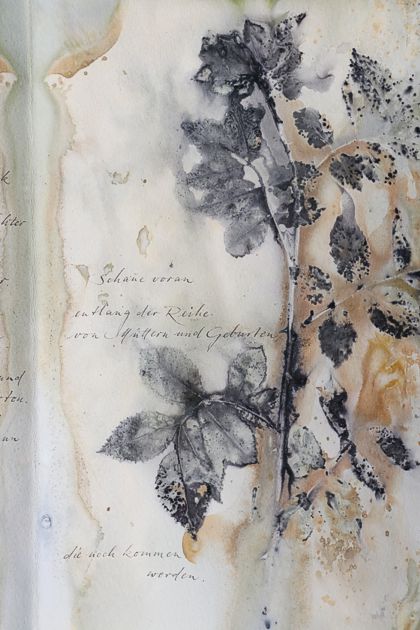 k
liter
r
und
rton.
un
Schaue voran
entlang der Reihe
von Müttern und Geburten,
die noch kommen
werden.